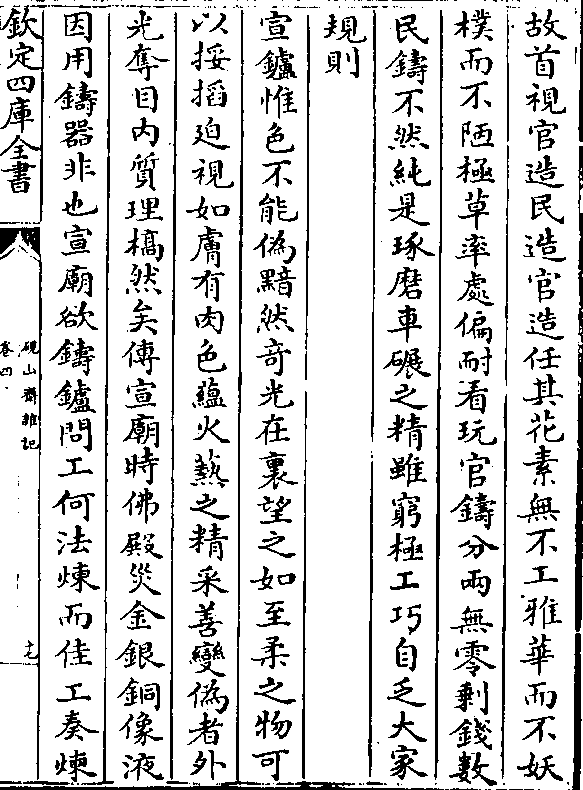 故首視官造民造官造任其花素無不工雅華而不妖
樸而不陋極草率處偏耐看玩官鑄分兩無零剩錢數
民鑄不然純是琢磨車碾之精雖窮極工巧自乏大家
規則
宣鑪惟色不能偽黯然竒光在裏望之如至柔之物可
以挼搯迫視如膚有肉色蘊火爇之精采善變偽者外
光奪目内質理槁然矣傳宣廟時佛殿災金銀銅像液
因用鑄器非也宣廟欲鑄鑪問工何法煉而佳工奏煉
欽定四庫全書
硯山齋雜記
卷四
十七